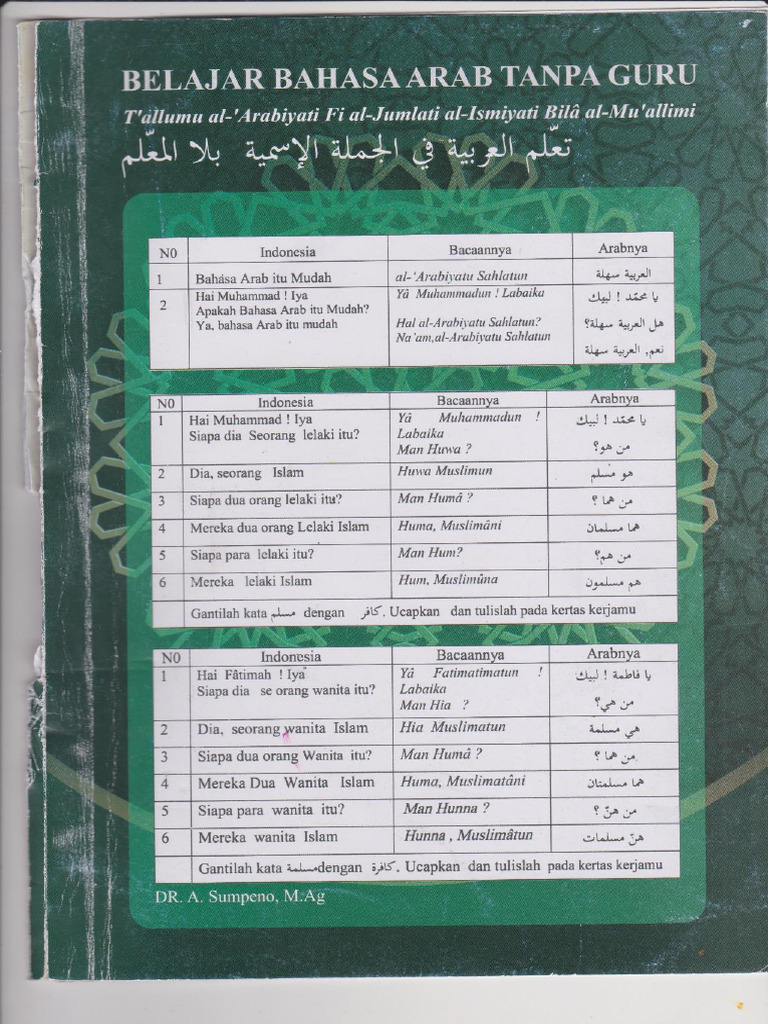 BELAJAR BAHASA ARAB TANPA GURU
T'allumu al-'Arabiyati Fi al-Jumlati al-Ismiyati Bilâ al-Mu'allimi
تعلّم العربية في الجملة الإسمية بلا المعلّم
N0 Indonesia Bacaannya Arabnya
1 Bahasa Arab itu Mudah al-'Arabiyatu Sahlatun العربية سهلة
2 Hai Muhammad ! Iya Yâ Muhammadun ! Labaika يا محمّد ! لبيك
Apakah Bahasa Arab itu Mudah? Hal al-Arabiyatu Sahlatun? هل العربية سهلة؟
Ya, bahasa Arab itu mudah Na'am,al-Arabiyatu Sahlatun نعم, العربية سهلة
N0 Indonesia Bacaannya Arabnya
1 Hai Muhammad ! Iya Yâ Muhammadun ! يا محمّد ! لبيك
Siapa dia Seorang lelaki itu? Labaika
Man Huwa ? من هو؟
2 Dia, seorang Islam Huwa Muslimun هو مسلم
3 Siapa dua orang lelaki itu? Man Humâ ? من هما ؟
4 Mereka dua orang Lelaki Islam Huma, Muslimâni هما مسلمان
5 Siapa para lelaki itu? Man Hum? من هم؟
6 Mereka lelaki Islam Hum, Muslimûna هم مسلمون
Gantilah kata مسلم dengan كافر. Ucapkan dan tulislah pada kertas kerjamu
N0 Indonesia Bacaannya Arabnya
1 Hai Fâtimah ! Iya Yâ Fatimatimatun ! يا فاطمة ! لبيك
Siapa dia se orang wanita itu? Labaika
Man Hia ? من هي؟
2 Dia, seorang wanita Islam Hia Muslimatun هي مسلمة
3 Siapa dua orang Wanita itu? Man Humâ ? من هما ؟
4 Mereka Dua Wanita Islam Huma, Muslimatâni هما مسلمتان
5 Siapa para wanita itu? Man Hunna ? من هنّ ؟
6 Mereka wanita Islam Hunna , Muslimâtun هنّ مسلمات
Gantilah kata مسلمة dengan كافرة. Ucapkan dan tulislah pada kertas kerjamu
DR. A. Sumpeno, M.Ag